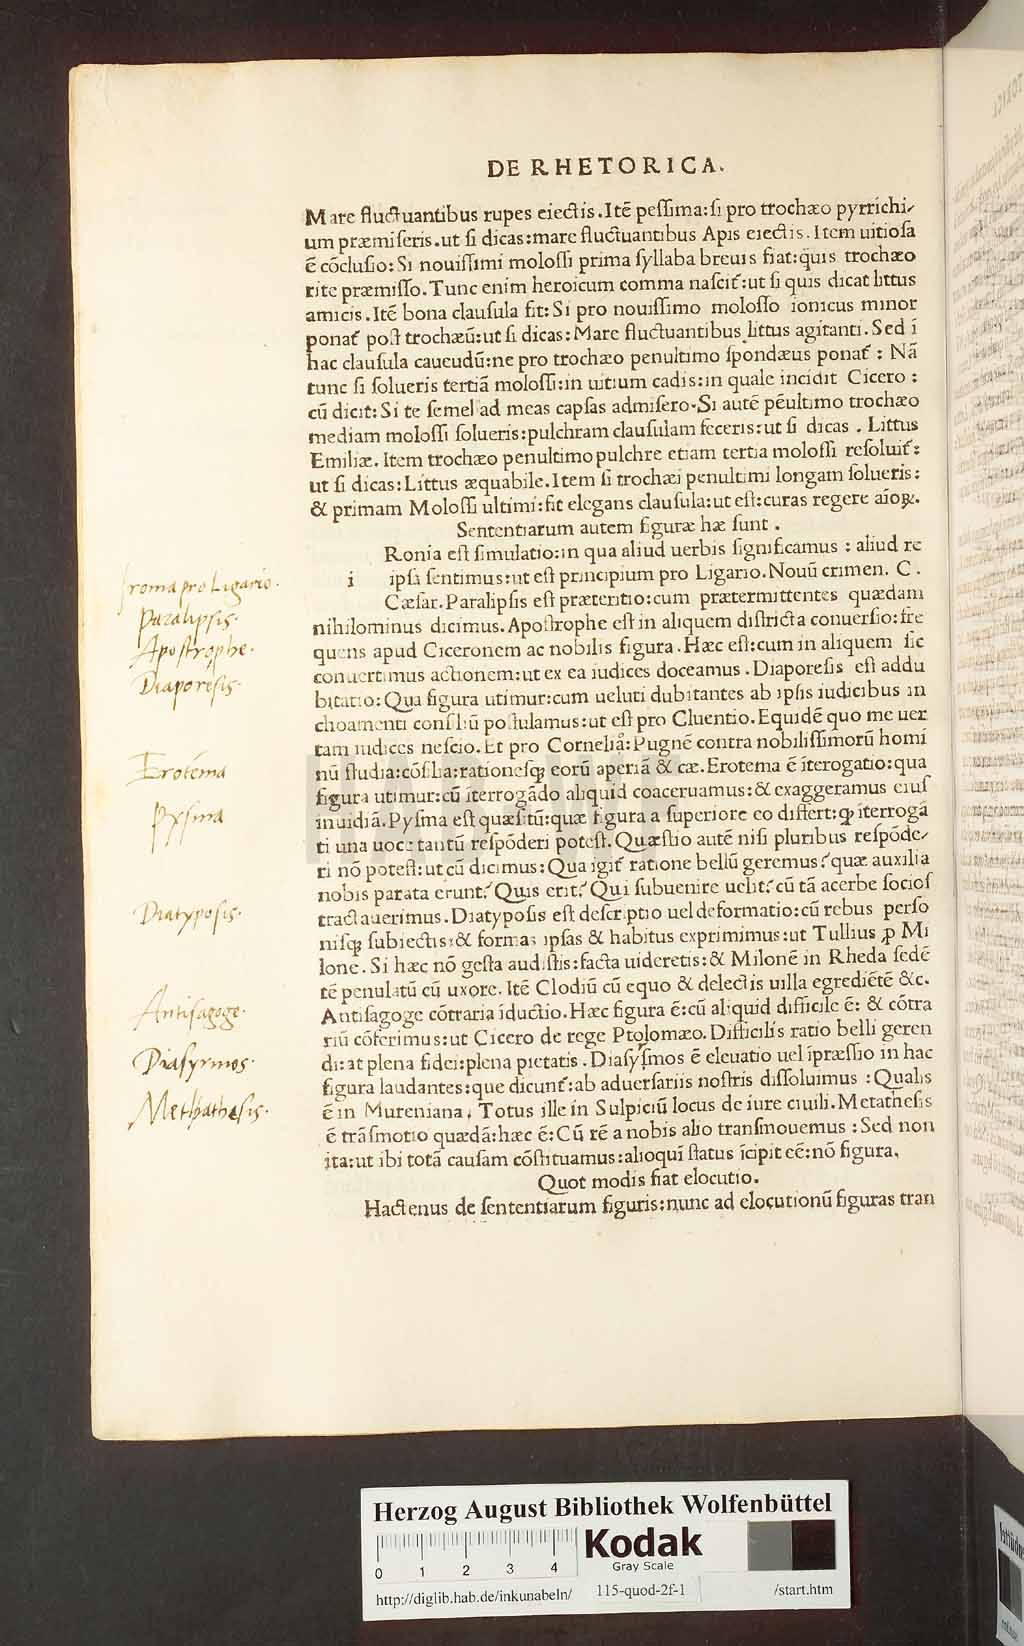 DE RHETORICA.
Mare fluctuantibus rupes eiectis. Itē pessima: si pro trochæo pyrrichi-
um præmiseris. ut si dicas: mare fluctuantibus Apis eiectis. Item uitiosa
ē cōclusio: Si nouissimi molossi prima syllaba breuis fiat: quis trochæo
rite præmisso. Tunc enim heroicum comma nascit̃: ut si quis dicat littus
amicis. Itē bona clausula fit: Si pro nouissimo molosso ionicus minor
ponat̃ post trochæū: ut si dicas: Mare fluctuantibus littus agitanti. Sed ī
hac clausula caueudū: ne pro trochæo penultimo spondæus ponat̃ : Nā
tunc si solueris tertiā molossi: in uitium cadis: in quale incidit Cicero :
cū dicit: Si te semel ad meas capsas admisero. Si autē pēultimo trochæo
mediam molossi solueris: pulchram clausulam feceris: ut si dicas . Littus
Emiliæ. Item trochæo penultimo pulchre etiam tertia molossi resoluit̃:
ut si dicas: Littus æquabile. Item si trochæi penultimi longam solueris:
& primam Molossi ultimi: fit elegans clausula: ut est: curas regere aīoꝝ.
Sententiarum autem figuræ hæ sunt .
Ronia est simulatio: in qua aliud uerbis significamus : aliud re
i ipsi sentimus: ut est principium pro Ligario. Nouū crimen. C .
Cæsar. Paralipsis est præteritio: cum prætermittentes quædam
nihilominus dicimus. Apostrophe est in aliquem districta conuersio: fre
quens apud Ciceronem ac nobilis figura. Hæc est: cum in aliquem sic
conuertimus actionem: ut ex ea iudices doceamus . Diaporesis est addu
bitatio: Qua figura utimur: cum ueluti dubitantes ab ipsis iudicibus in
choamenti consiliū postulamus: ut est pro Cluentio. Equidē quo me uer
tam iudices nescio. Et pro Cornelia: Pugnē contra nobilissimorū homi
nū studia: cōsilia: rationesqꝫ eorū aperiā & cæ. Erotema ē īterogatio: qua
figura utimur: cū īterrogādo aliquid coaceruamus: & exaggeramus eius
inuidiā. Pysma est quæsitū: quæ figura a superiore eo differt: ꝙ īterrogā
ti una uoce tantū respōderi potest. Quæstio autē nisi pluribus respōde-
ri nō potest: ut cū dicimus: Qua igit̃ ratione bellū geremus? quæ auxilia
nobis parata erunt? Quis erit? Qui subuenire uelit? cū tā acerbe socios
tractauerimus. Diatyposis est descriptio uel deformatio: cū rebus perso
nisqꝫ subiectis: & formas ipsas & habitus exprimimus: ut Tullius ꝓ Mi
lone. Si hæc nō gesta audistis: facta uideretis: & Milonē in Rheda sedē
tē penulatū cū uxore. Itē Clodiū cū equo & delectis uilla egrediētē &c.
Antisagoge cōtraria īductio. Hæc figura ē: cū aliquid difficile ē: & cōtra
riū cōferimus: ut Cicero de rege Ptolomæo. Difficilis ratio belli geren
di: at plena fidei: plena pietatis . Diasyrmos ē eleuatio uel īpræssio in hac
figura laudantes: que dicunt̃: ab aduersariis nostris dissoluimus : Qualis
ē in Mureniana. Totus ille in Sulpiciū locus de iure ciuili. Metathesis
ē trāsmotio quædā: hæc ē: Cū rē a nobis alio transmouemus : Sed non
ita: ut ibi totā causam cōstituamus: alioqui status īcipit eē: nō figura.
Quot modis fiat elocutio.
Hactenus de sententiarum figuris: nunc ad elocutionū figuras tran
Ironia pro Ligario.
Paralipsis.
Apostrophe.
Diaporesis.
Erotema
Pysma
Diatyposis.
Antisagoge.
Diasyrmos.
Methathesis.
HAB WF
Herzog August Bibliothek Wolfenbüttel
0 1 2 3 4
Kodak
Gray Scale
http://diglib.hab.de/inkunabeln/ 115-quod-2f-1 /start.htm